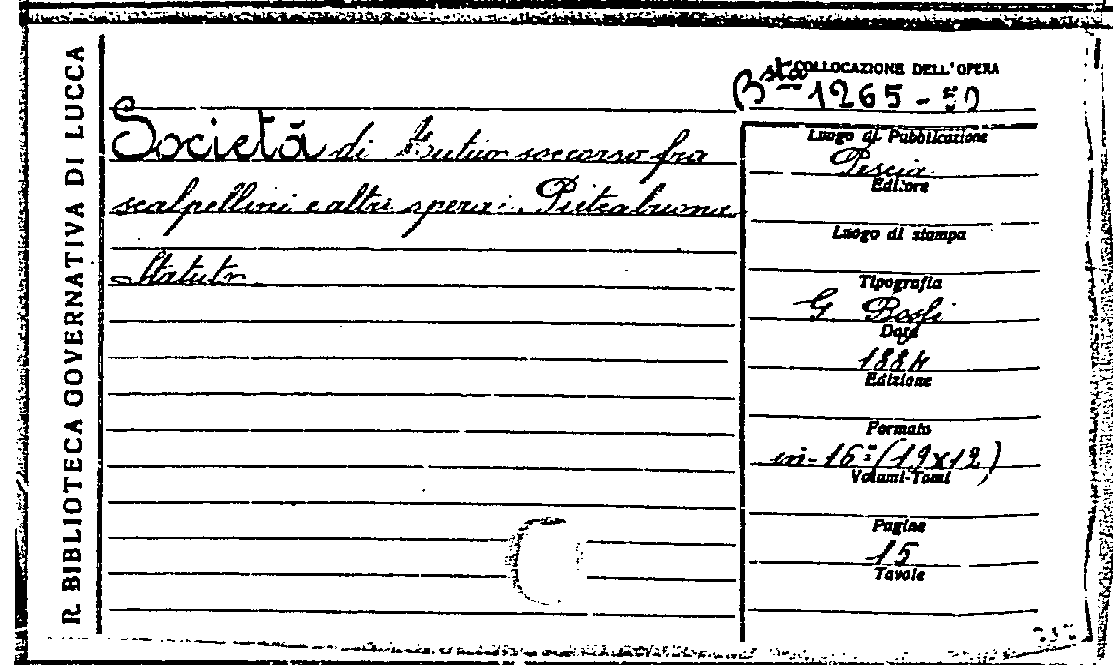 R. BIBLIOTECA GOVERNATIVA DI LUCCA
COLLOCAZIONE DELL'OPERA
Bsta 1265 -
Società di Mutuo soccorso fra
scalpellini e altri operai: Pietrabuona
Statuto.
Luogo di Pubblicazione
Pescia
Editore
Luogo di stampa
Tipografia
G
Data
1884
Edizione
Formato
in-16º (19x12)
Volumi-Tomi
Pagine
15
Tavole